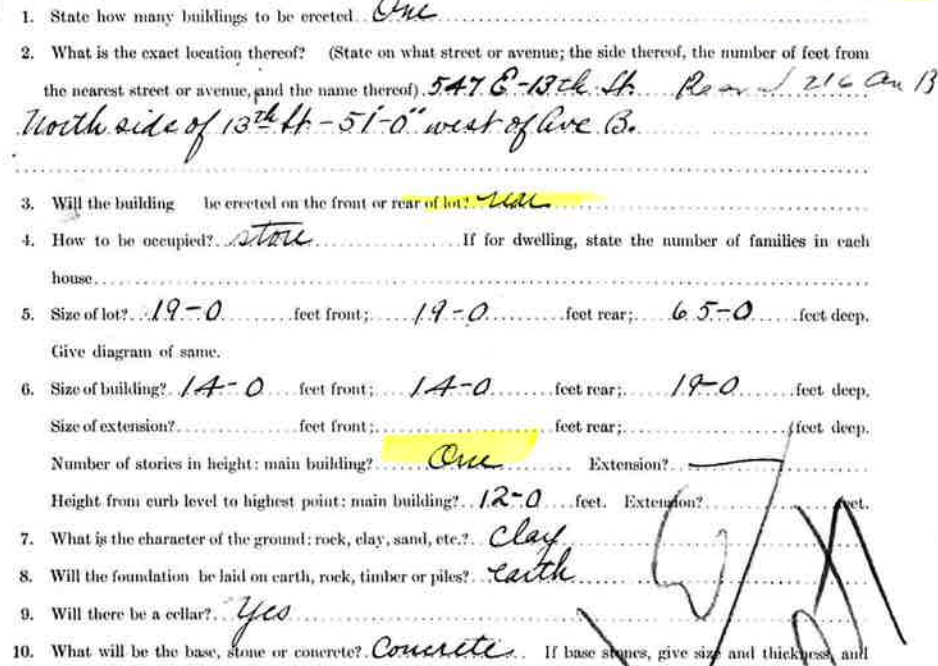 1. State how many buildings to be erected One
2. What is the exact location thereof? (State on what street or avenue; the side thereof, the number of feet from
the nearest street or avenue, and the name thereof) 547 E-13th St. Rear 216 Av B
North side of 13th St - 51'-0" west of Ave B.
3. Will the building be erected on the front or rear of lot? rear
4. How to be occupied? store If for dwelling, state the number of families in each
house
5. Size of lot? 19-0 feet front; 19-0 feet rear; 65-0 feet deep.
Give diagram of same.
6. Size of building? 14-0 feet front; 14-0 feet rear; 19-0 feet deep.
Size of extension? feet front; feet rear; feet deep.
Number of stories in height: main building? One Extension?
Height from curb level to highest point: main building? 12-0 feet. Extension? feet.
7. What is the character of the ground: rock, clay, sand, etc.? Clay
8. Will the foundation be laid on earth, rock, timber or piles? Earth
9. Will there be a cellar? Yes
10. What will be the base, stone or concrete? Concrete If base stones, give size and thickness, and